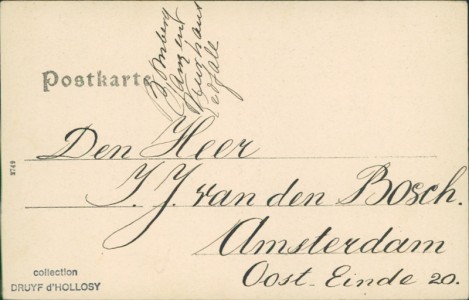 Postkarte
Den Heer
J. J. van den Bosch.
Amsterdam
Oost-Einde 20.
8749
collection
DRUYF d'HOLLOSY